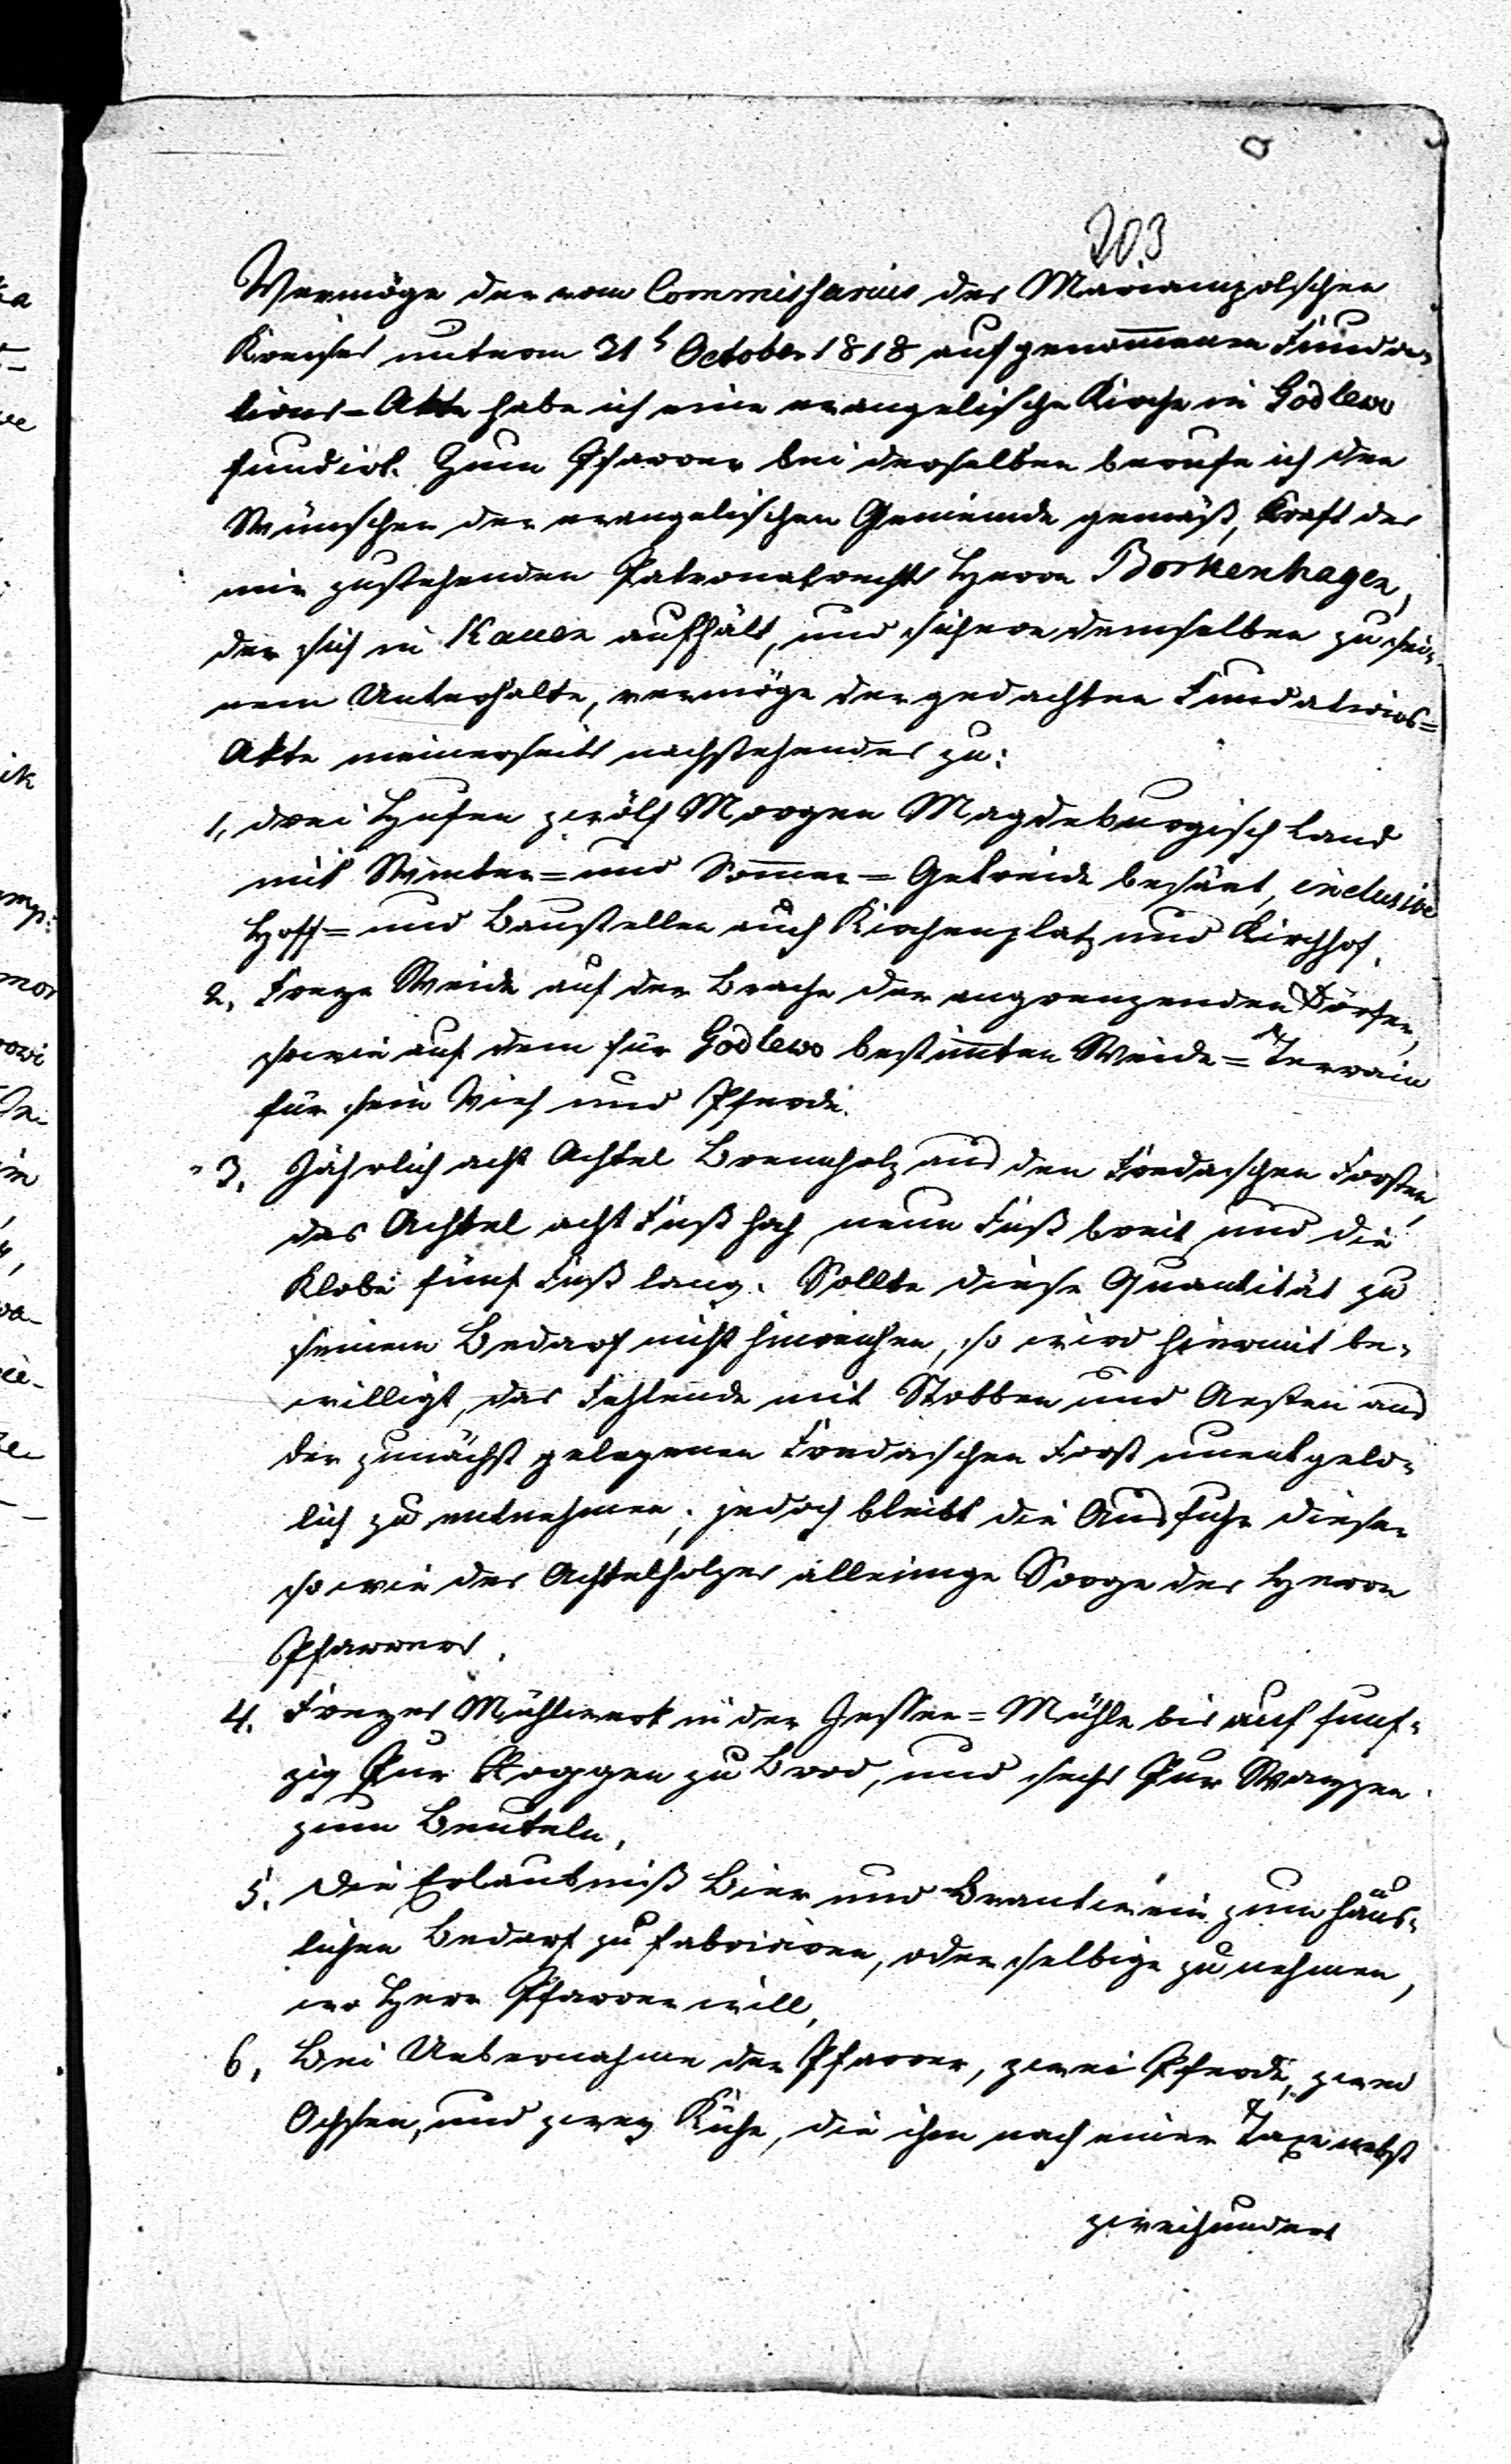 203
Vermöge der vom Commissarius des Mariampolschen
Kreises unterm 31t October 1818 aufgenommenen Funda=
tions-Akte habe ich eine evangelische Kirche in Godlewo
fundirt. Zum Pfarrer bei derselben berufe ich den
Wünschen der evangelischen Gemeinde gemäß, Kraft des
mir zustehenden Patronatrechts Herrn Borkenhagen,
der sich in Kauen aufhält, und sichere demselben zu sei=
nem Unterhalte, vermöge der gedachten Fundations=
Akte meinerseits nachstehendes zu:
1, drei Hufen zwölf Morgen Magdeburgisch Land
mit Winter= und Sommer=Getreide besäet, inclusive
Hoff= und Baustellen auch Kirchenplatz und Kirchhof.
2, Freye Weide auf der Brache der angrenzenden Dörfer,
sowie auf dem für Godlewo bestimmten Weide=Terrain
für sein Vieh und Pferde.
3, Jährlich acht Achtel Brennholz aus den Fredaschen Forsten,
das Achtel acht Fuß hoch, neun Fuß breit, und die
Klobe fünf Fuß lang. Sollte diese Quantität zu
seinem Bedarf nicht hinreichen, so wird hiermit be=
willigt, das Fehlende mit Stobben und Aesten aus
der zunächst gelegenen Fredaschen Forst unentgeld=
lich zu entnehmen; jedoch bleibt die Ausfuhr dieser
so wie des Achtelholzes alleinige Sorge des Herrn
Pfarrers.
4. Freyes Mühlwerk in der Jessen=Mühle bis auf funf=
zig Pur Roggen zu Brod, und sechs Pur Waizen
zum Beuteln,
5. Die Erlaubniß Bier und Brantwein zum häus=
lichen Bedarf zu fabriciren, oder selbige zu nehmen,
wo Herr Pfarrer will,
6, Bei Uebernahme der Pfarre, zwei Pferde, zwei
Ochsen, und zwey Kühe, die ihm nach einer Taxe nebst
zweihundert